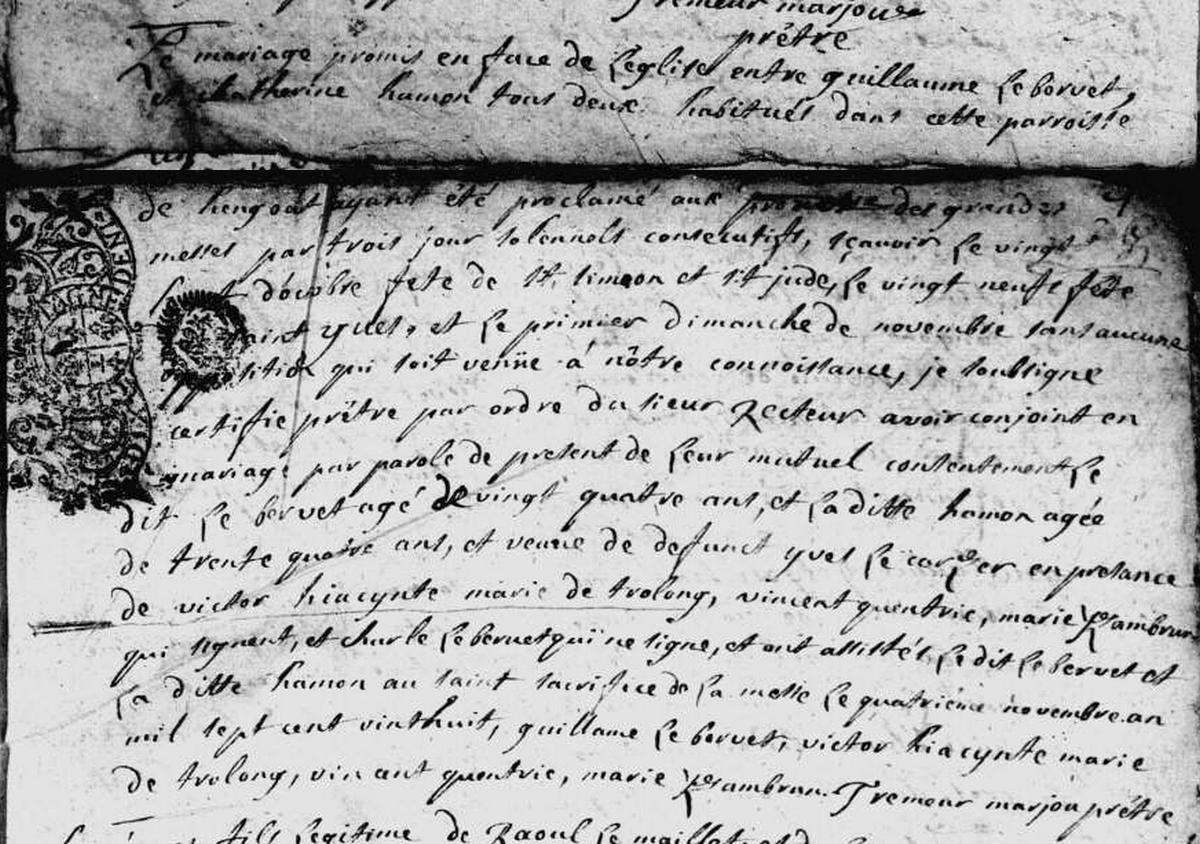 Tremeur marjou
prêtre
Le mariage promis en face de Leglise entre guillaume Le bervet,
et Catherine hamon tous deux habitués dans cette parroisse
de hengoat ayant été proclamé aux des grandes
messes par trois jour solennels consecutifs, sçavoir Le vingt
d'octobre fete de st, simeon et st jude, Le vingt neufe fête
saint yves, et Le primier dimanche de novembre sans aucune
opposition qui soit venüe á nôtre connoissance, je soubsigne
certifie prêtre par ordre du sieur Recteur avoir conjoint en
mariage par parole de present de Leur mutuel consentement Le
dit Le bervet agé de vingt quatre ans, et La ditte hamon agée
de trente quatre ans, et veuve de defunct yves Le en presance
de victor hiacynte marie de trolong, vincent quentric, marie Kersambrun
qui signent, et charle Le bervet qui ne signe, et ont assistés Le dit Le bervet et
La ditte hamon au saint sacrifice de La messe Le quatriéme novembre an
mil sept cent vinthuit, guillame Le bervet, victor hiacynte marie
de trolong, vincant quentric, marie Kersambrun. Tremeur marjou prêtre
fils Legitime de Raoul Le maillot et